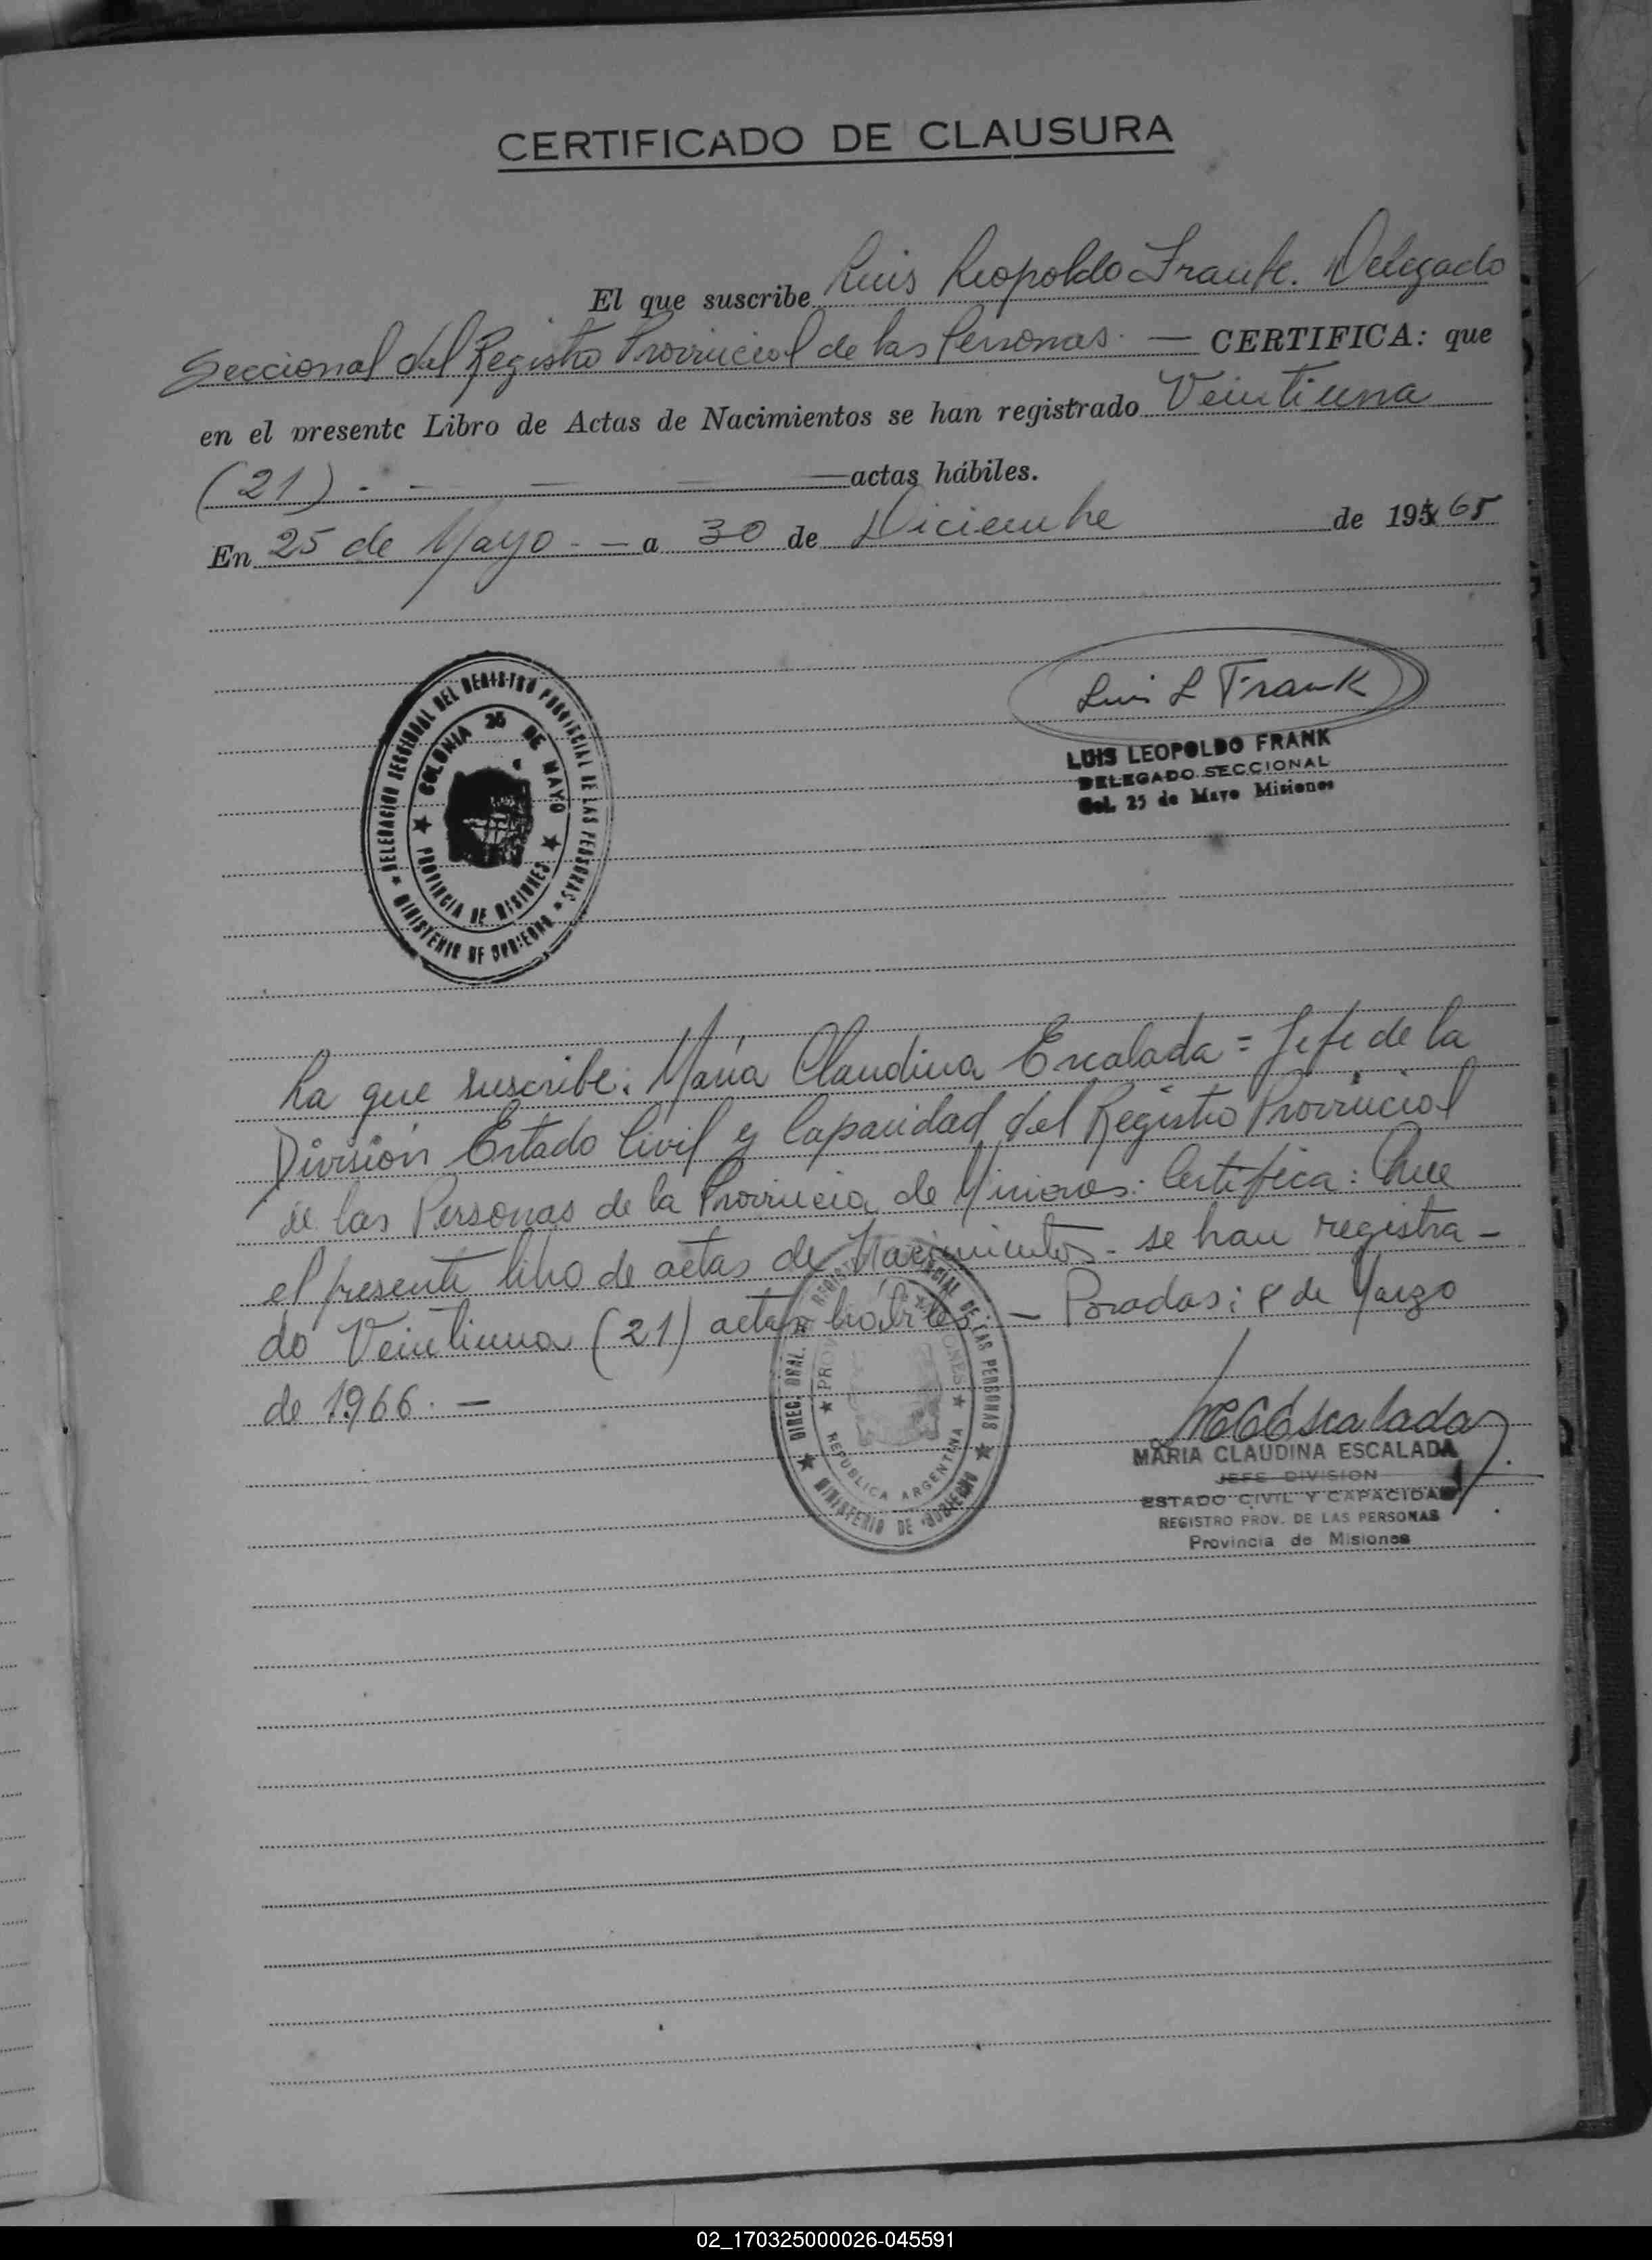 CERTIFICADO DE CLAUSURA
El que suscribe Luis Leopoldo Frank. Delegado
Seccional del Registro Provincial de las Personas. — CERTIFICA: que
en el presente Libro de Actas de Nacimientos se han registrado Veintiuna
(21) . - — — — actas hábiles.
En 25 de Mayo - — a 30 de Diciembre de 195 65
Luis L Frank
LUIS LEOPOLDO FRANK
DELEGADO SECCIONAL
Col. 25 de Mayo Misiones
DELEGACION SECCIONAL DEL REGISTRO PROVINCIAL DE LAS PERSONAS
MINISTERIO DE GOBIERNO
COLONIA 25 DE MAYO
PROVINCIA DE MISIONES
La que suscribe: María Claudina Escalada = Jefe de la
División Estado Civil y Capacidad del Registro Provincial
de las Personas de la Provincia de Misiones: Certifica: Que
el presente libro de actas de Nacimientos - se han registra -
do Veintiuna (21) actas hábiles. — Posadas: 8 de Marzo
de 1966. —
REGISTRO PROVINCIAL DE LAS PERSONAS
MINISTERIO DE GOBIERNO
REPUBLICA ARGENTINA
MCEscalada
MARIA CLAUDINA ESCALADA
JEFE DIVISION
ESTADO CIVIL Y CAPACIDAD
REGISTRO PROV. DE LAS PERSONAS
Provincia de Misiones
02_170325000026-045591